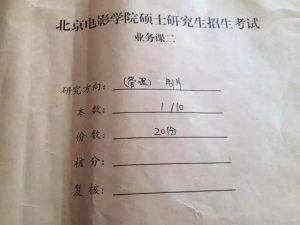 北京电影学院硕士研究生招生考试
业务课二
研究方向：(管理)
本数：1/10
份数：20份
核分：
复核：